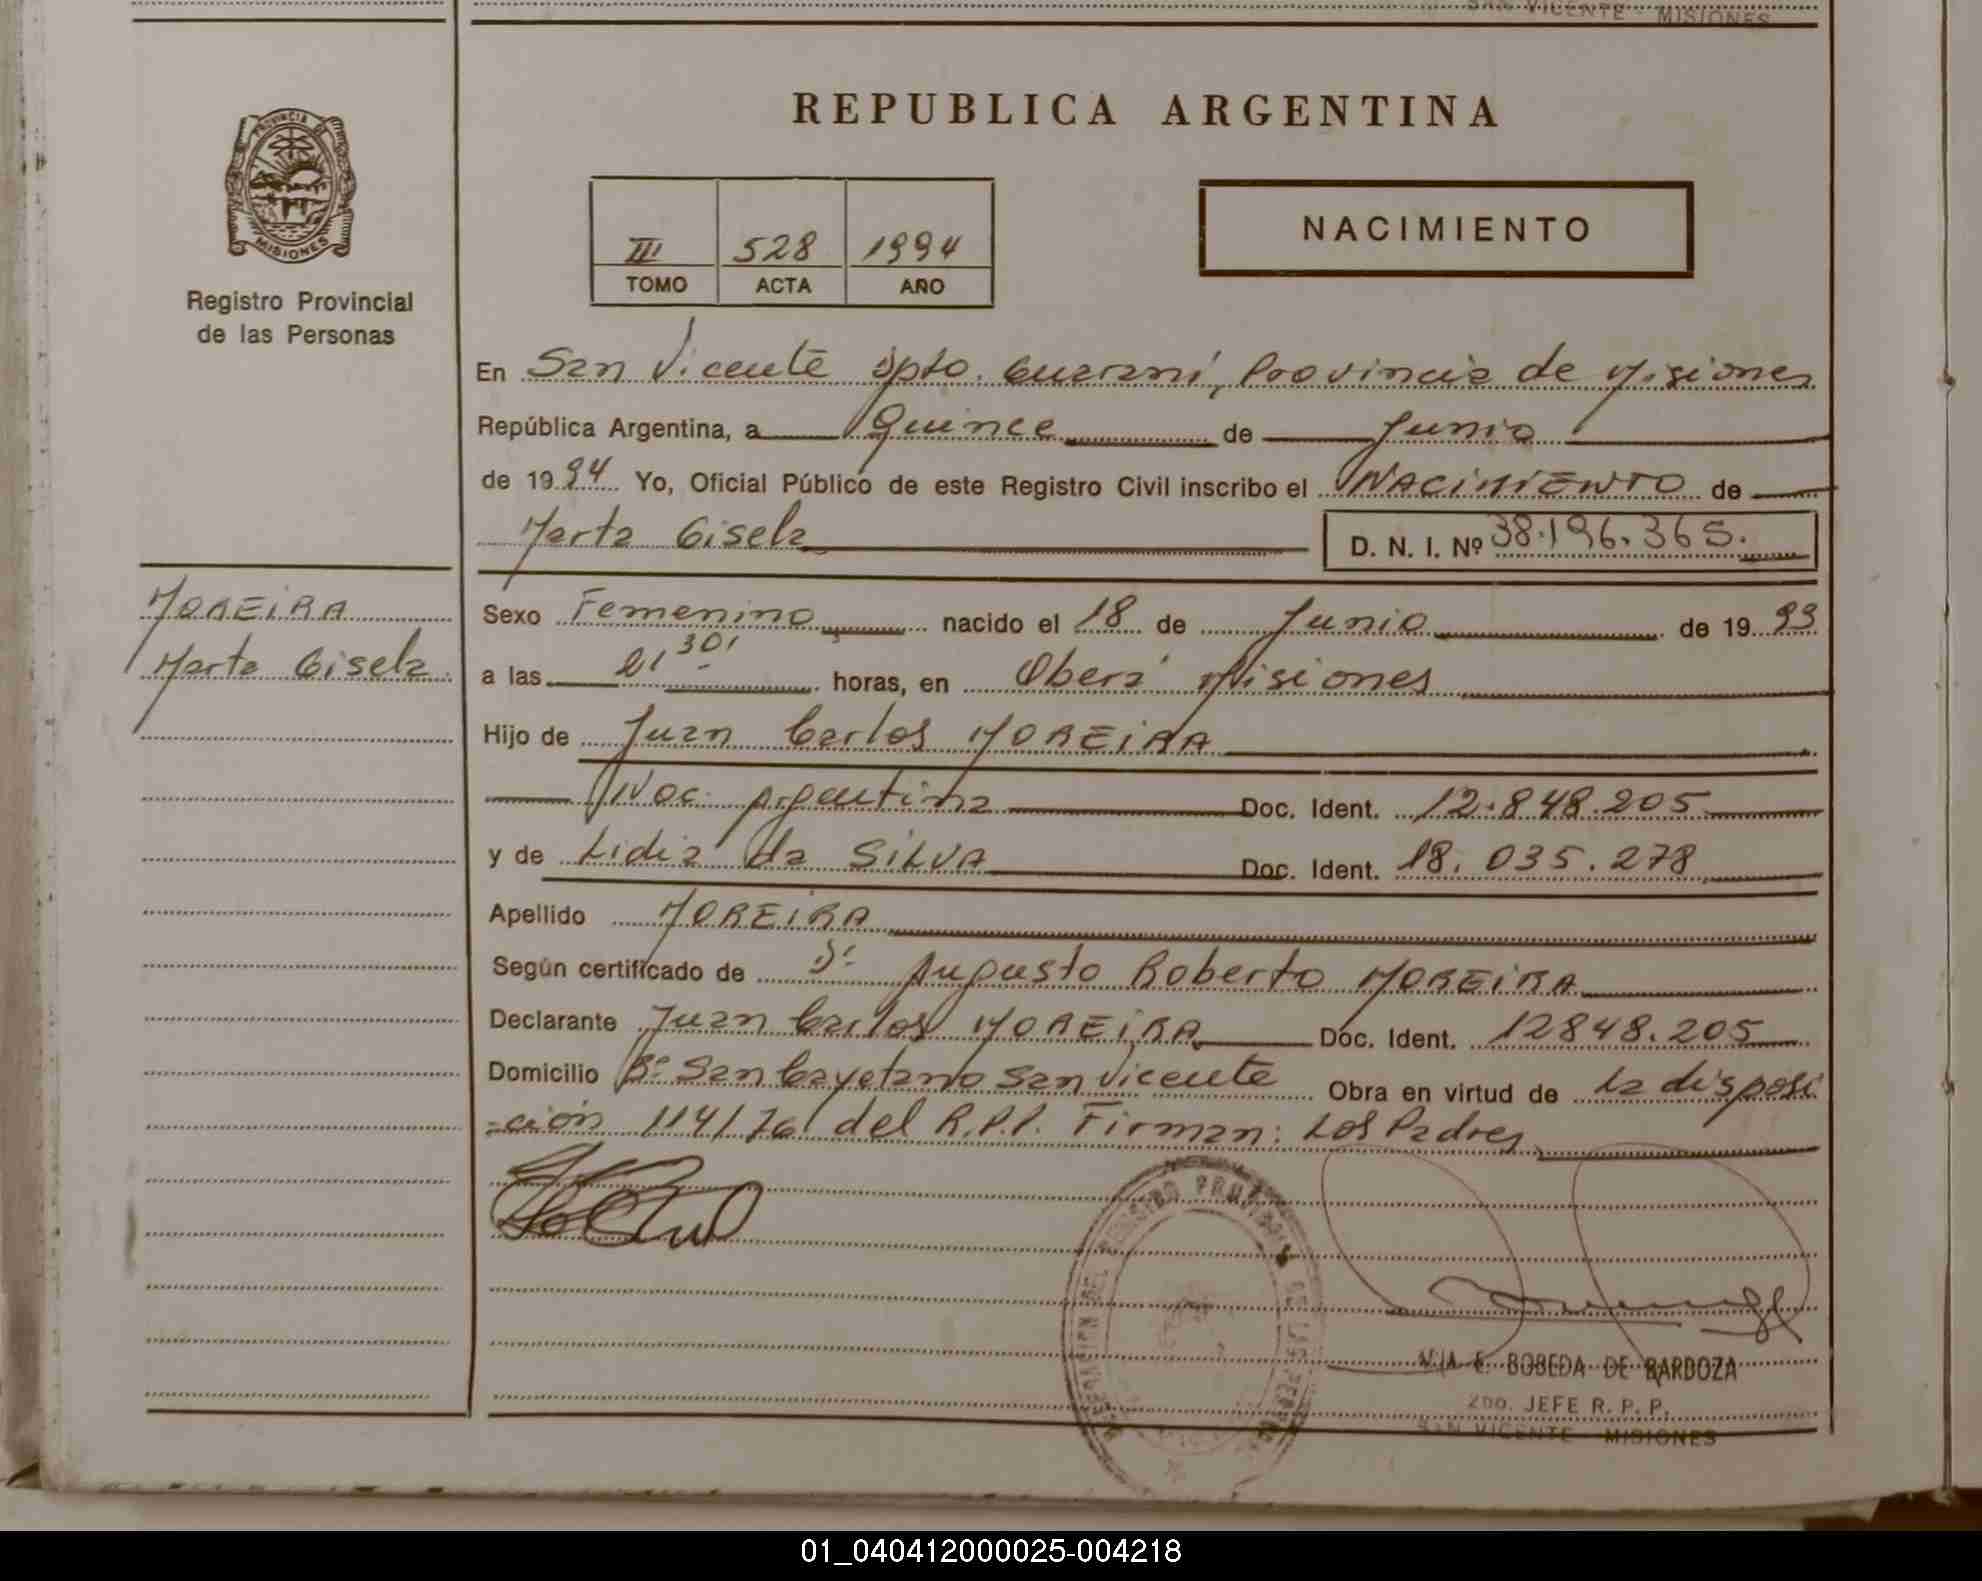 SAN VICENTE - MISIONES
REPUBLICA ARGENTINA
PROVINCIA DE
MISIONES
Registro Provincial
de las Personas
III 528 1994
TOMO ACTA AÑO
NACIMIENTO
En San Vicente Dpto. Guaraní, Provincia de Misiones
República Argentina, a Quince de Junio
de 1994 Yo, Oficial Público de este Registro Civil inscribo el NACIMIENTO de
Marta Gisela D. N. I. Nº 38.196.365.
MOREIRA
Marta Gisela
Sexo Femenino nacido el 18 de Junio de 1993
a las 21 30' horas, en Oberá Misiones
Hijo de Juan Carlos MOREIRA
Nac. Argentina Doc. Ident. 12.848.205
y de Lidia da SILVA Doc. Ident. 18.035.278
Apellido MOREIRA
Según certificado de Dr. Augusto Roberto MOREIRA
Declarante Juan Carlos MOREIRA Doc. Ident. 12848.205
Domicilio Bº San Cayetano San Vicente Obra en virtud de la disposi
=ción 114/76 del R.P.P. Firman: Los Padres
E. BOBEDA DE BARDOZA
2DO. JEFE R. P. P.
SAN VICENTE - MISIONES
01_040412000025-004218